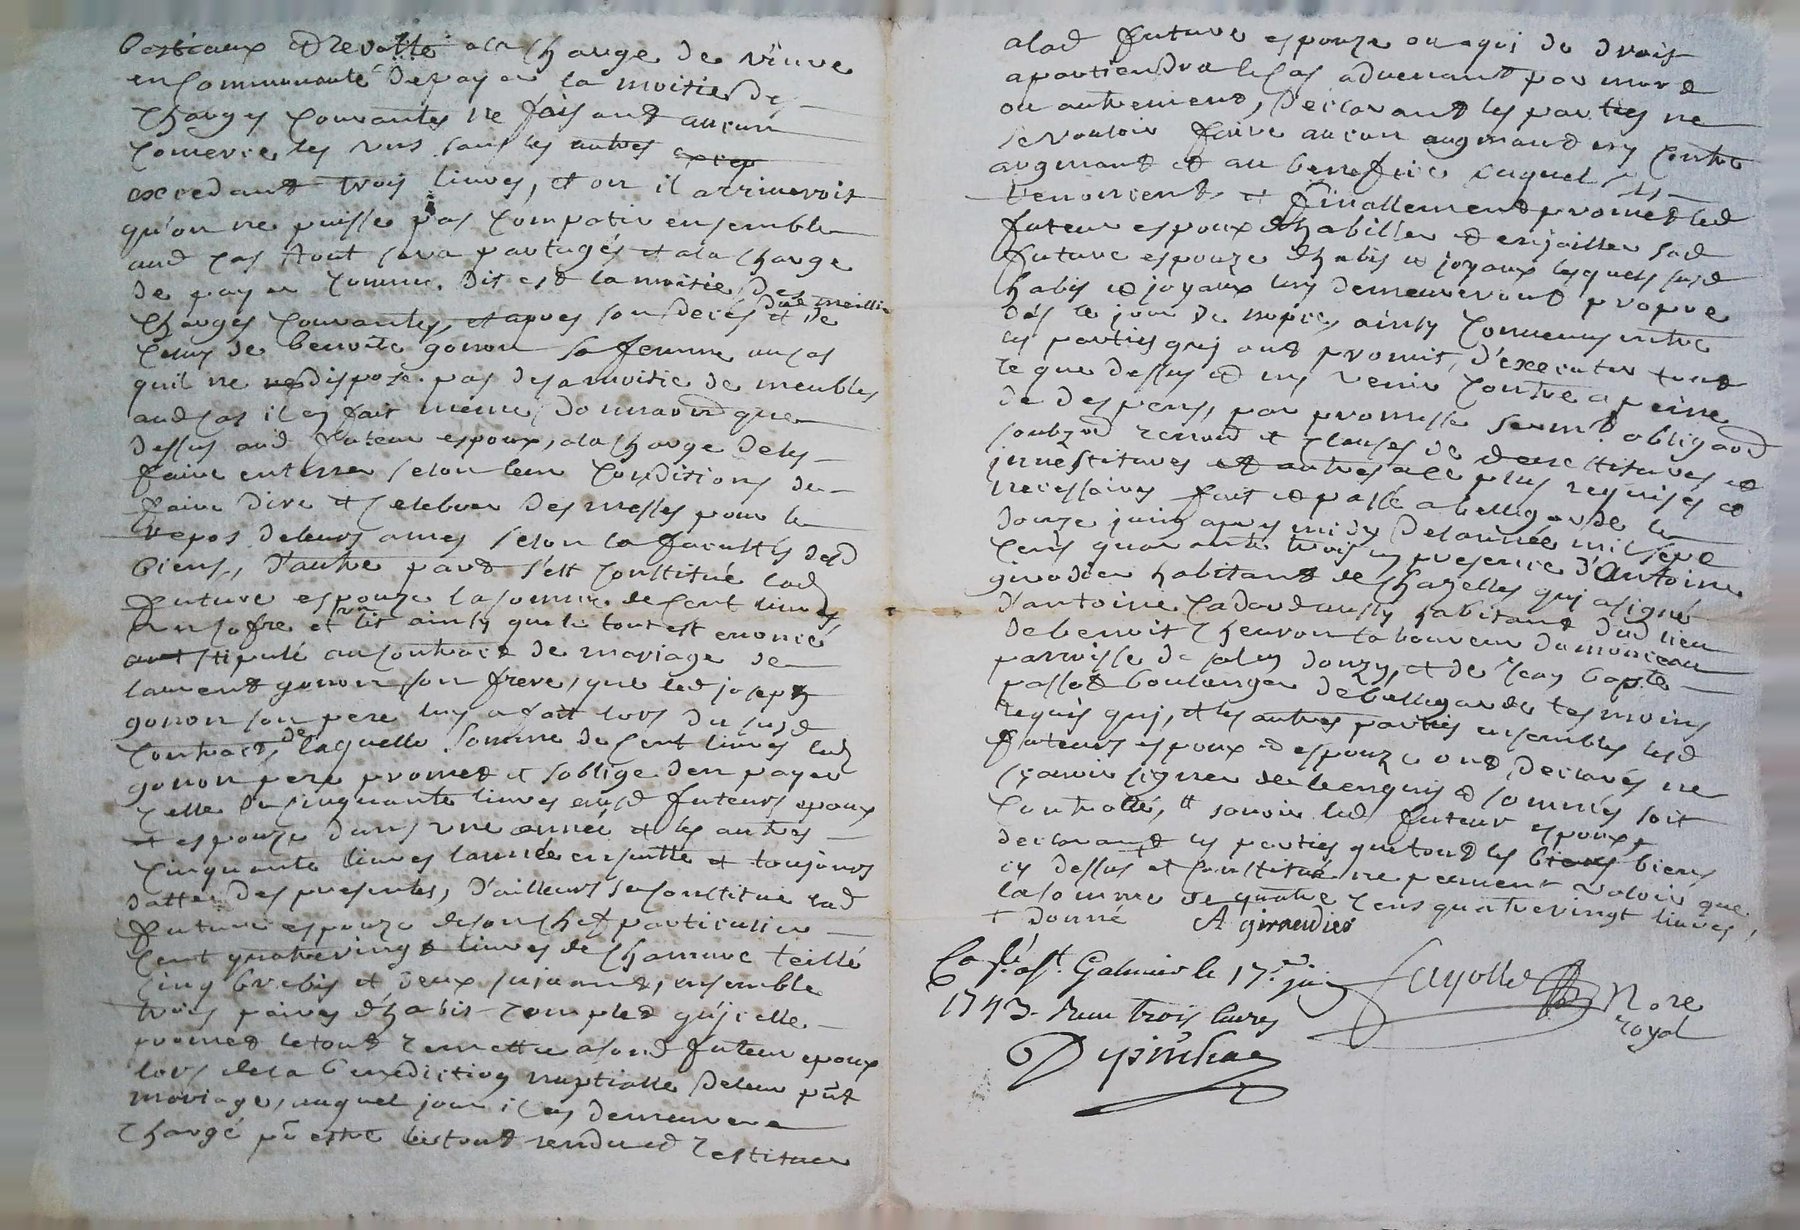 bestiaux et revolte a la charge de vivre
en Communauté de payer la moitié des
charges Courantes ne faisant aucun
Comerce les uns sans les autres
excedant trois livres, et ou il arriveroit
qu'on ne puisse pas Compatir ensemble
aud Cas tout sera partagés et a la charge
de payer Comme dit est la moitié des
Charges Courantes, et apres son deces et de
Celuy de benoite gonon sa femme au cas
quil ne dispose pas de sa moitié de meubles
aud Cas il en fait même donnaon que
dessus aud futeur espoux, a la charge de les
faire enterrer selon leur Conditions de
faire dire et Celebrer des messes pour le
repos de leurs ames selon la facultés desd
biens, d'autre part s'est Constitué lad
future espouze la somme de Cent livres
un cofre et un lit ainsy que le tout est enoncé
et stipulé au Contract de mariage de
laurent gonon son frere, que led joseph
gonon son pere luy a fait lors du susd
Contract, de laquelle somme de Cent livres led
gonon pere promet et s'oblige d'en payer
Celle de Cinquante livres ausd futeurs epoux
et espouze dans une année et les autres
Cinquante livres l'année ensuitte et toujours
datter des presentes, d'ailleurs se Constitue lad
future espouze de son chef particulier
Cent quatrevingt livres de chanvre teillé
Cinq brebis et deux suivant, ensemble
trois paires d'habit Complet qu'icelle
promet le tout remettre a sond futeur epoux
lors de la benediction nuptialle de leur pnt
mariage, auquel jour il en demeurera
Chargé pr estre le tout rendu et restituer
a lad future espouze ou a qui de droit
apartiendra le Cas advenant par mort
ou autrement, declarant les parties ne
se vouloir faire aucun augmant ny Contre
augmant et au benefice duquel ils
renoncent et finallement promet led
futeur espoux d'habiller et enjoailler sad
future espouze d'habis et joyaux lesquels susd
habis et joyaux luy demeureront propre
dés le jour de nopce, ainsy Convenu entre
les parties qui ont promis, d'executer tout
ce que dessus et ny venir Contre a peine
de despens, par promesse serm.t obligaon
soubzon renon et Clauses de
investitures et autres a ce plus requises et
necessaires fait et passé a bellegarde le
douze juin apres midy de l'année mil sept
Cens quarante trois en presence d'antoine
girodier habitant de Chazelles qui a signé
d'antoine habitant dud lieu
de benoit Chevron laboureur du monceau
parroisse de salvy donzy, et de Jean bapte
passot boulanger de bellegarde tesmoins
requis qui, et les autres parties ensembles lesd
futeurs espoux et espouze ont declarés ne
sçavoir signer de ce enquis et sommés soit
Controllé, et savoir led futeur espoux +
declarant les parties que tout les biens
cy dessus et Constitué ne peuvent valoir que
la somme de quatre Cens quatrevingt livres,
+ donné A girreudier
Co.lé a St. Galmier le 17e. juin
1743. Reçu trois livres
Fayolle Nore
royal